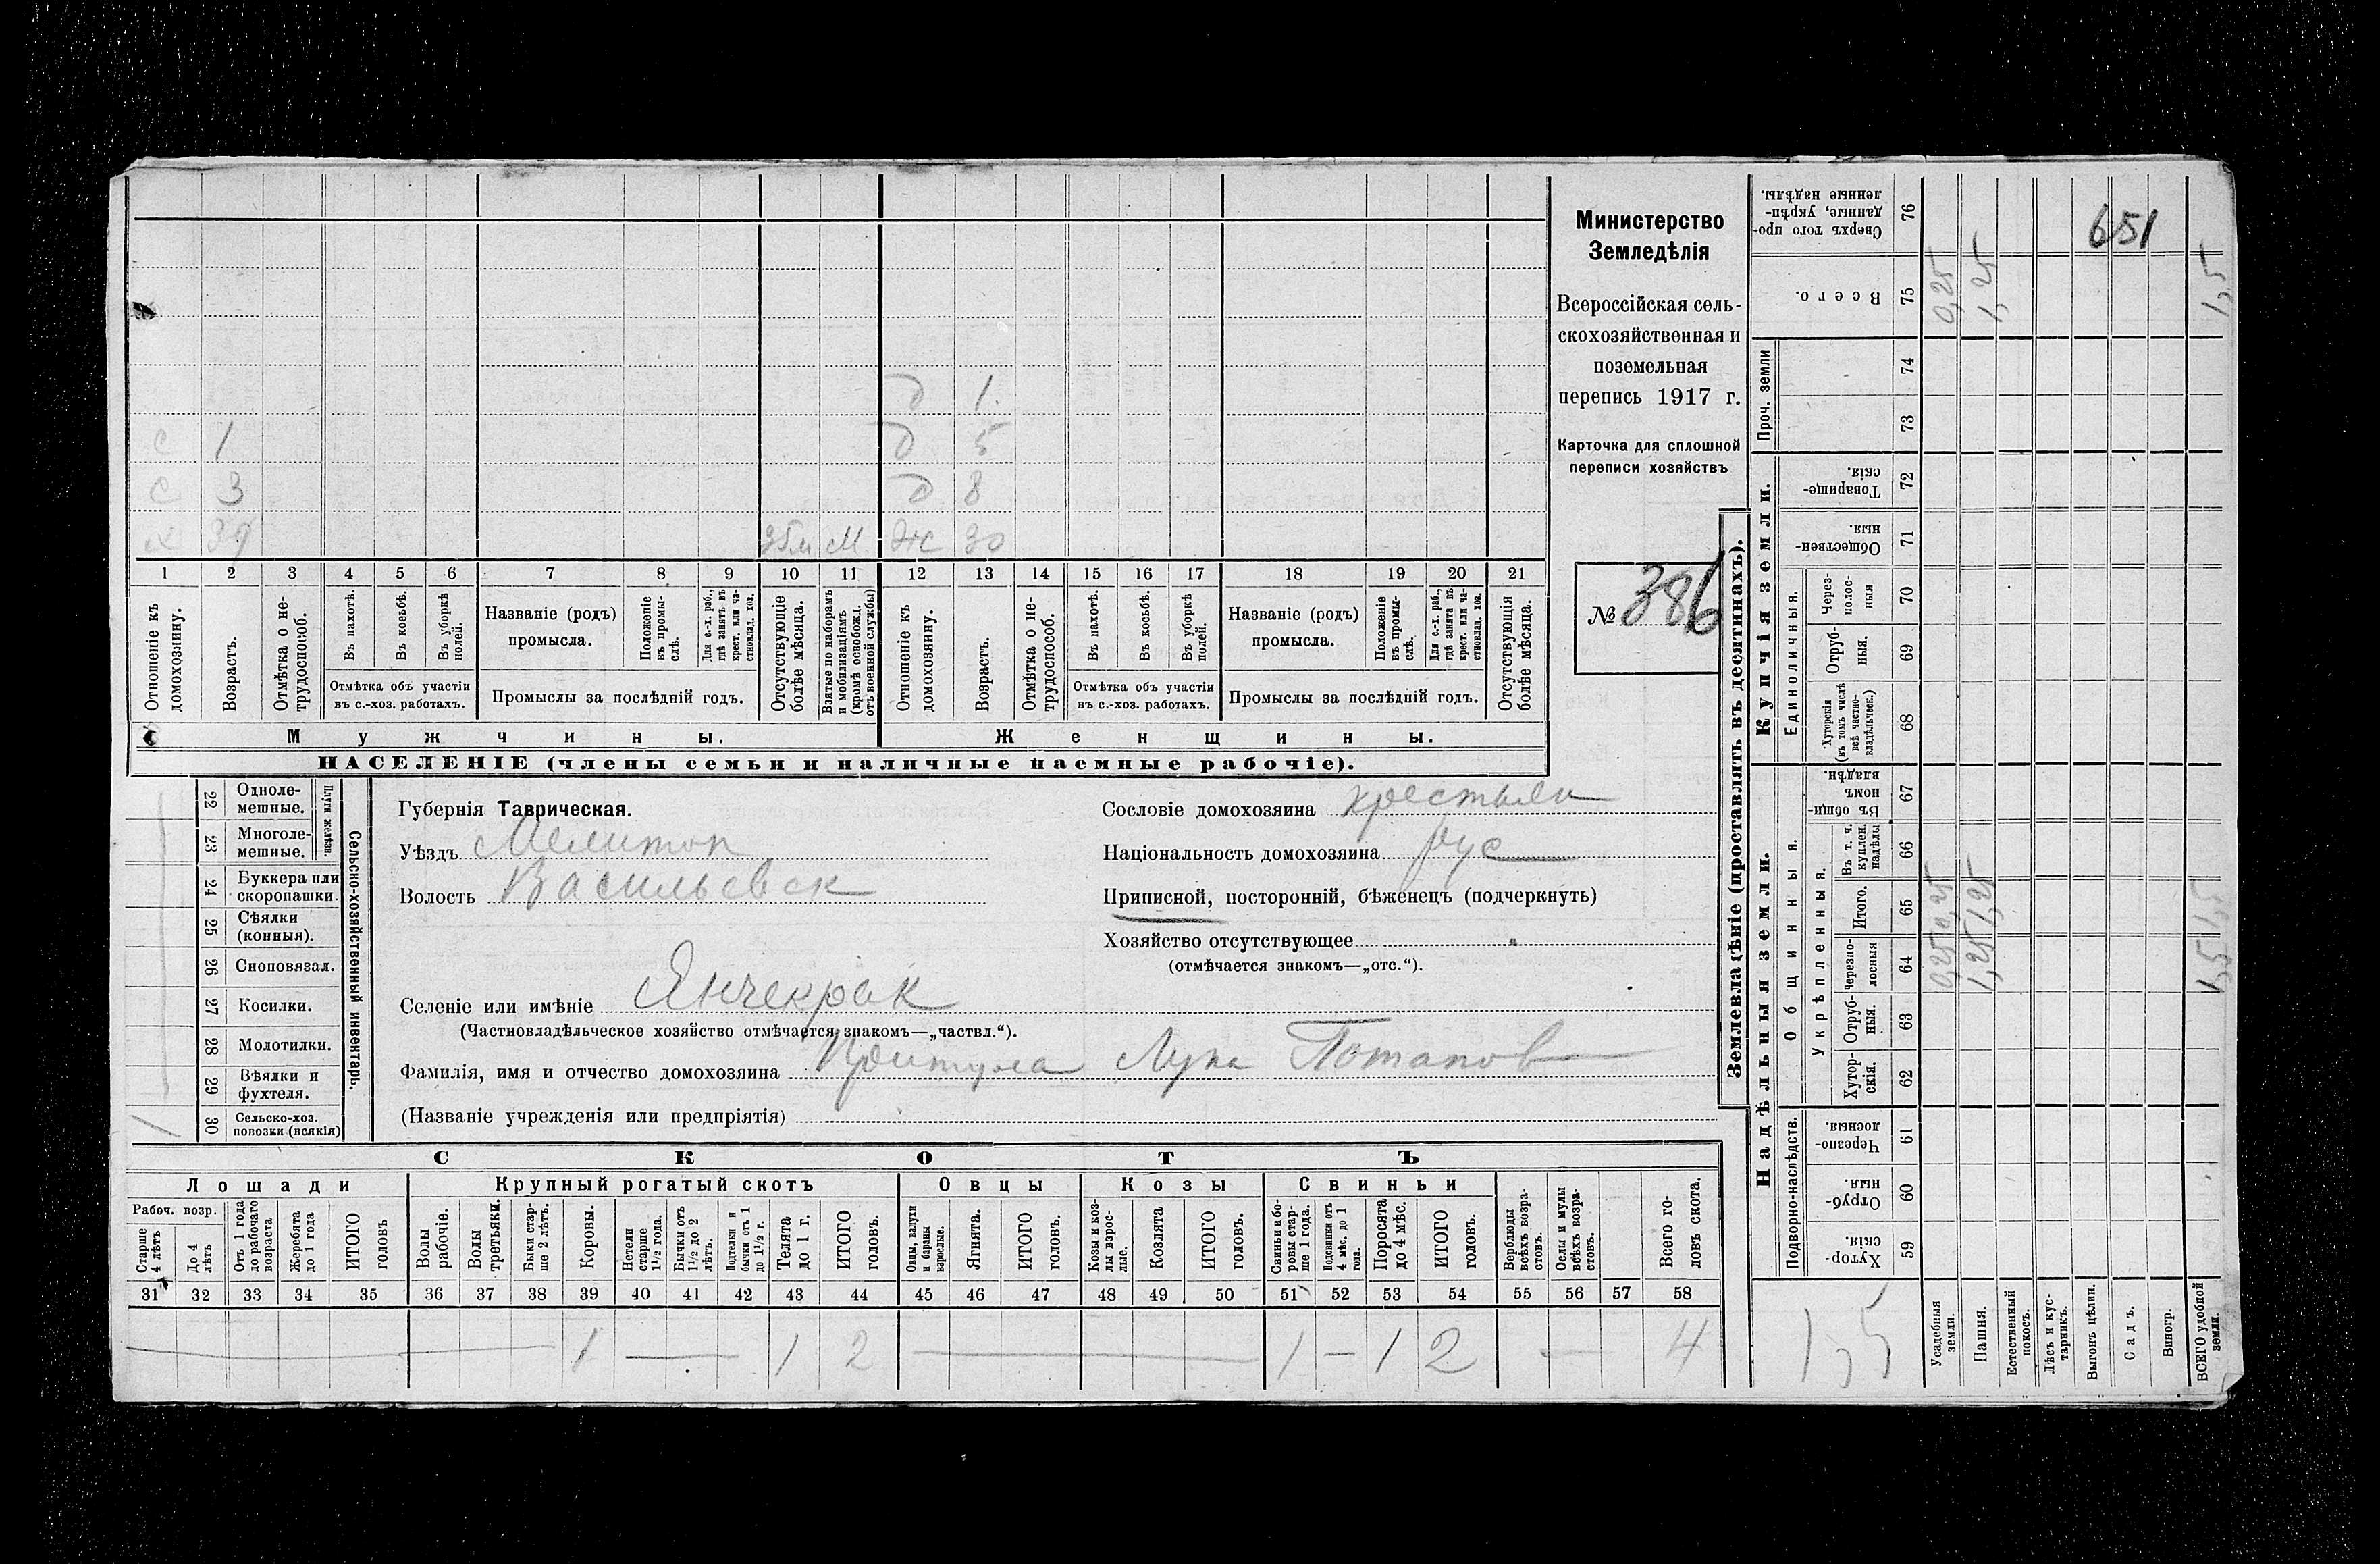 Министерство
Земледѣлія
Всероссійская сель-
скохозяйственная и
поземельная
перепись 1917 г.
Карточка для сплошной
переписи хозяйствъ
№ 386
651
д 1.
с 1 д 5
с 3 д 8
х 39 М ж 30
1 2 3 4 5 6 7 8 9 10 11 12 13 14 15 16 17 18 19 20 21
Отношеніе къ домохозяину.
Возрастъ.
Отмѣтка о не-трудоспособ.
Въ пахотѣ.
Въ косьбѣ.
Въ уборкѣ полей.
Отмѣтка объ участіи
въ с.-хоз. работахъ.
Названіе (родъ)
промысла.
Положеніе въ промы-слѣ.
Для с.-х. раб., гдѣ занятъ въ крест. или ча-стновлад. хоз.
Промыслы за послѣдній годъ.
Отсутствующіе болѣе мѣсяца.
Взятые по наборамъ и мобилизаціямъ (кромѣ освобожд. отъ военной службы)
Отношеніе къ домохозяину.
Возрастъ.
Отмѣтка о не-трудоспособ.
Въ пахотѣ.
Въ косьбѣ.
Въ уборкѣ полей.
Отмѣтка объ участіи
въ с.-хоз. работахъ.
Названіе (родъ)
промысла.
Положеніе въ промы-слѣ.
Для с.-х. раб., гдѣ занята въ крест. или ча-стновлад. хоз.
Промыслы за послѣдній годъ.
Отсутствующія болѣе мѣсяца.
Мужчины. Женщины.
НАСЕЛЕНІЕ (члены семьи и наличные наемные рабочіе).
Сельско-хозяйственный инвентарь.
Плуги желѣзн.
22 Одноле-мешные.
23 Многоле-мешные.
24 Буккера или скоропашки.
25 Сѣялки (конныя).
26 Сноповязал.
27 Косилки.
28 Молотилки.
29 Вѣялки и фухтеля.
30 Сельско-хоз. повозки (всякія) 1
Губернія Таврическая.
Уѣздъ Мелитоп
Волость Васильевск
Сословіе домохозяина крестьян
Національность домохозяина рус
Приписной, посторонній, бѣженецъ (подчеркнуть)
Хозяйство отсутствующее
(отмѣчается знакомъ—„отс.“).
Селеніе или имѣніе Янчекрак
(Частновладѣльческое хозяйство отмѣчается знакомъ—„частвл.“).
Фамилія, имя и отчество домохозяина Притула Лупа Потапов
(Названіе учрежденія или предпріятія)
СКОТЪ
Лошади Крупный рогатый скотъ Овцы Козы Свиньи
Рабоч. возр.
Старше 4 лѣтъ
До 4 лѣтъ
Отъ 1 года до рабочаго возраста
Жеребята до 1 года
ИТОГО головъ
Волы рабочіе.
Волы третьяки.
Быки стар-ше 2 лѣтъ.
Коровы.
Нетели старше 1 1/2 года.
Бычки отъ 1 1/2 до 2 лѣтъ.
Подтелки и бычки отъ 1 до 1 1/2 г.
Телята до 1 г.
ИТОГО головъ.
Овцы, валухи и бараны взрослые.
Ягнята.
ИТОГО головъ.
Козы и коз-лы взрос-лые.
Козлята
ИТОГО головъ.
Свиньи и бо-ровы стар-ше 1 года.
Подсвинки отъ 4 мѣс. до 1 года.
Поросята до 4 мѣс.
ИТОГО головъ.
Верблюды всѣхъ возра-стовъ.
Ослы и мулы всѣхъ возра-стовъ.
Всего го-ловъ скота.
31 32 33 34 35 36 37 38 39 40 41 42 43 44 45 46 47 48 49 50 51 52 53 54 55 56 57 58
1 — 1 2 — 1 — 1 2 — 4
Землевладѣніе (проставлять въ десятинахъ).
Надѣльныя земли. Купчія земли. Проч. земли
Подворно-наслѣдств.
Общинныя.
Укрѣпленныя.
Единоличныя.
Хутор-скія. 59
Отруб-ныя. 60
Черезпо-лосныя. 61
Хутор-скія. 62
Отруб-ныя. 63
Черезпо-лосныя 64 0,25 1,25 1,5
Итого. 65 0,25 1,25 1,5
Въ т. ч. куплен. надѣлы 66
Въ общин-номъ владѣн. 67
Хуторскія (въ томъ числѣ всѣ частно-владѣльческ.) 68
Отруб-ныя. 69
Через-полос-ныя 70
Обществен-ныя. 71
Товарище-скія. 72
73
74
Всего. 75 0,25 1,25 1,5
Сверхъ того про-данные, укрѣп-ленные надѣлы. 76
Усадебныя земли.
Пашня.
Естественный покосъ.
Лѣсъ и кус-тарникъ.
Выгонъ цѣлин.
Садъ.
Виногр.
ВСЕГО удобной земли.
1,5